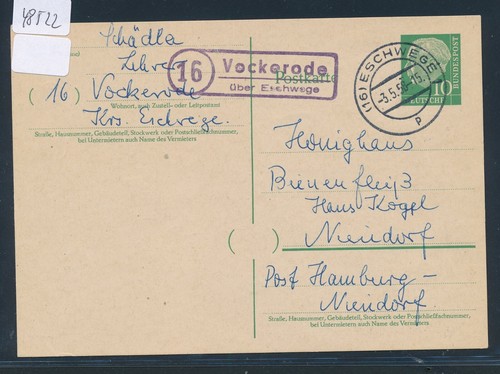 48522
Schädla
Lehrer
(16) Vockerode
Wohnort, auch Zustell- oder Leitpostamt
Krs. Eschwege.
Straße, Hausnummer, Gebäudeteil, Stockwerk oder Postschließfachnummer,
bei Untermietern auch Name des Vermieters
16 Vockerode
über Eschwege
Postkarte
(16) ESCHWEGE
-3.5.56-15
p
DEUTSCHE
BUNDESPOST
10
Honighaus
Bienenfleiß
Hans Kogel
Niendorf
( )
Post Hamburg-
Niendorf.
Straße, Hausnummer, Gebäudeteil, Stockwerk oder Postschließfachnummer,
bei Untermietern auch Name des Vermieters